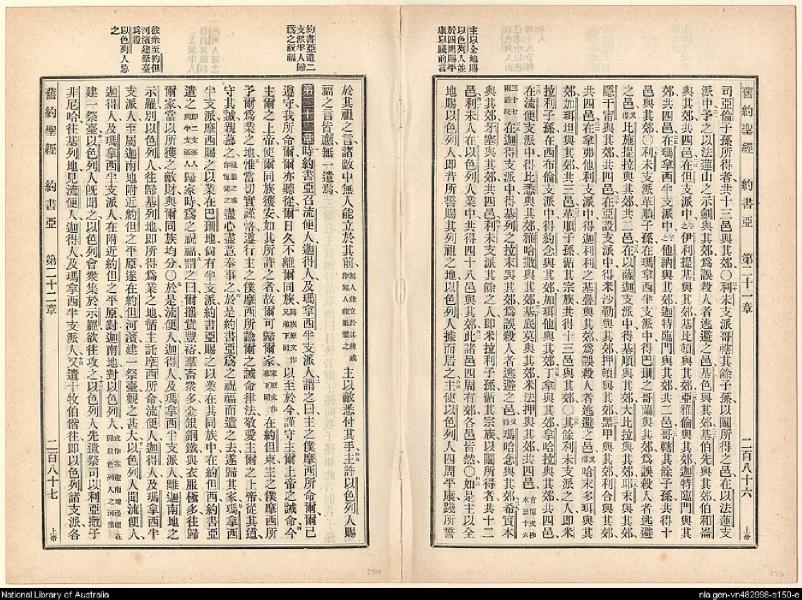 主以全地賜
以色列人並
於四周賜平
康以踐前言
舊約聖經 約書亞 第二十一章 二百八十六 上帝
司亞倫子孫所得者共十三邑與其郊〇利未支派哥轄其餘子孫以鬮所得之邑在以法蓮支
派中予之以法蓮山之示劍與其郊爲誤殺人者逃避之邑基色與其郊基伯先與其郊伯和崙
與其郊共四邑在但支派中伊利提基與其郊基比頓與其郊亞雅倫與其郊迦特臨門與其
郊共四邑在瑪拿西半支派中他納與其郊迦特臨門與其郊共二邑哥轄其餘子孫共得十
邑與其郊〇利未支派革順子孫在瑪拿西半支派中得巴珊之哥蘭與其郊爲誤殺人者逃避
之邑比施提拉與其郊共二邑在以薩迦支派中得基順與其郊大比拉與其郊耶末與其郊
隱干甯與其郊共四邑在亞設支派中得米沙勒與其郊押頓與其郊黑甲與其郊利合與其郊
共四邑在拿弗他利支派中得迦利利之基疊與其郊爲誤殺人者逃避之邑哈末多珥與其
郊加珥坦與其郊共三邑革順子孫循其宗族共得十三邑與其郊〇其餘利未支派之人即米
拉利子孫在西布倫支派中得約念與其郊加珥他與其郊丁拿與其郊拿哈拉與其郊共四邑
在流便支派中得比悉與其郊雅哈雜與其郊基底莫與其郊米法押與其郊共四邑
在迦得支派中得基列之拉末與其郊爲誤殺人者逃避之邑瑪哈念與其郊希實本
與其郊牙塞與其郊共四邑利未支派其餘之人即米拉利子孫循其宗族以鬮所得者共十二
邑利未人在以色列人業中共得四十八邑與其郊此諸邑四周有郊各邑皆然〇如是主以全
地賜以色列人即昔所誓賜其列祖之地以色列人據而居之主使以色列人四周平康踐所誓
約書亞遣二
支派半人歸
爲之祝福
彼衆至約但
河濱建祭臺
爲證
以色列人怒
之
於其祖之言諸敵中無人能立於其前主以敵悉付其手主許以色列人賜
福之言皆應無一遺焉
第二十二章時約書亞召流便人迦得人及瑪拿西半支派人謂之曰主之僕摩西所命爾爾已
遵守我所命爾爾亦聽從爾日久不離爾同族以至於今謹守主爾上帝之誡命今
主爾之上帝使爾同族獲安如其所許之者故爾可歸爾家在約但東主之僕摩西所
予爾爲業之地惟當切實謹恪遵行主之僕摩西所諭爾之誡命律法敬愛主爾之上帝從其道
守其誡親慕之盡心盡意奉事之於是約書亞爲之祝福而遣之去遂歸其家瑪拿西
半支派摩西賜之以業在巴珊地尚有半支派約書亞賜之以業在其同族中在約但西約書亞
遣之歸家時爲之祝福謂之曰爾攜貲豐裕羣畜衆多金銀銅鐵與衣服極多往歸
爾家當以所獲之敵財與爾同族均分〇於是流便人迦得人及瑪拿西半支派人離迦南地之
示羅別以色列人往歸基列地即所得爲業之地循主託摩西所命流便人迦得人及瑪拿西半
支派人至屬迦南地附近約但之平原遂在約但河濱建一祭臺觀之甚大以色列人聞流便人
迦得人及瑪拿西半支派人在附近約但之平原對迦南地對以色列人
建一祭臺以色列人既聞之以色列會衆集於示羅欲往攻之以色列人先遣祭司以利亞撒子
非尼哈往基列地見流便人迦得人及瑪拿西半支派人又遣十牧伯偕往即以色列諸支派各
舊約聖經 約書亞 第二十二章 二百八十七 上帝
National Library of Australia
nla.gen-vn482998-s150-e